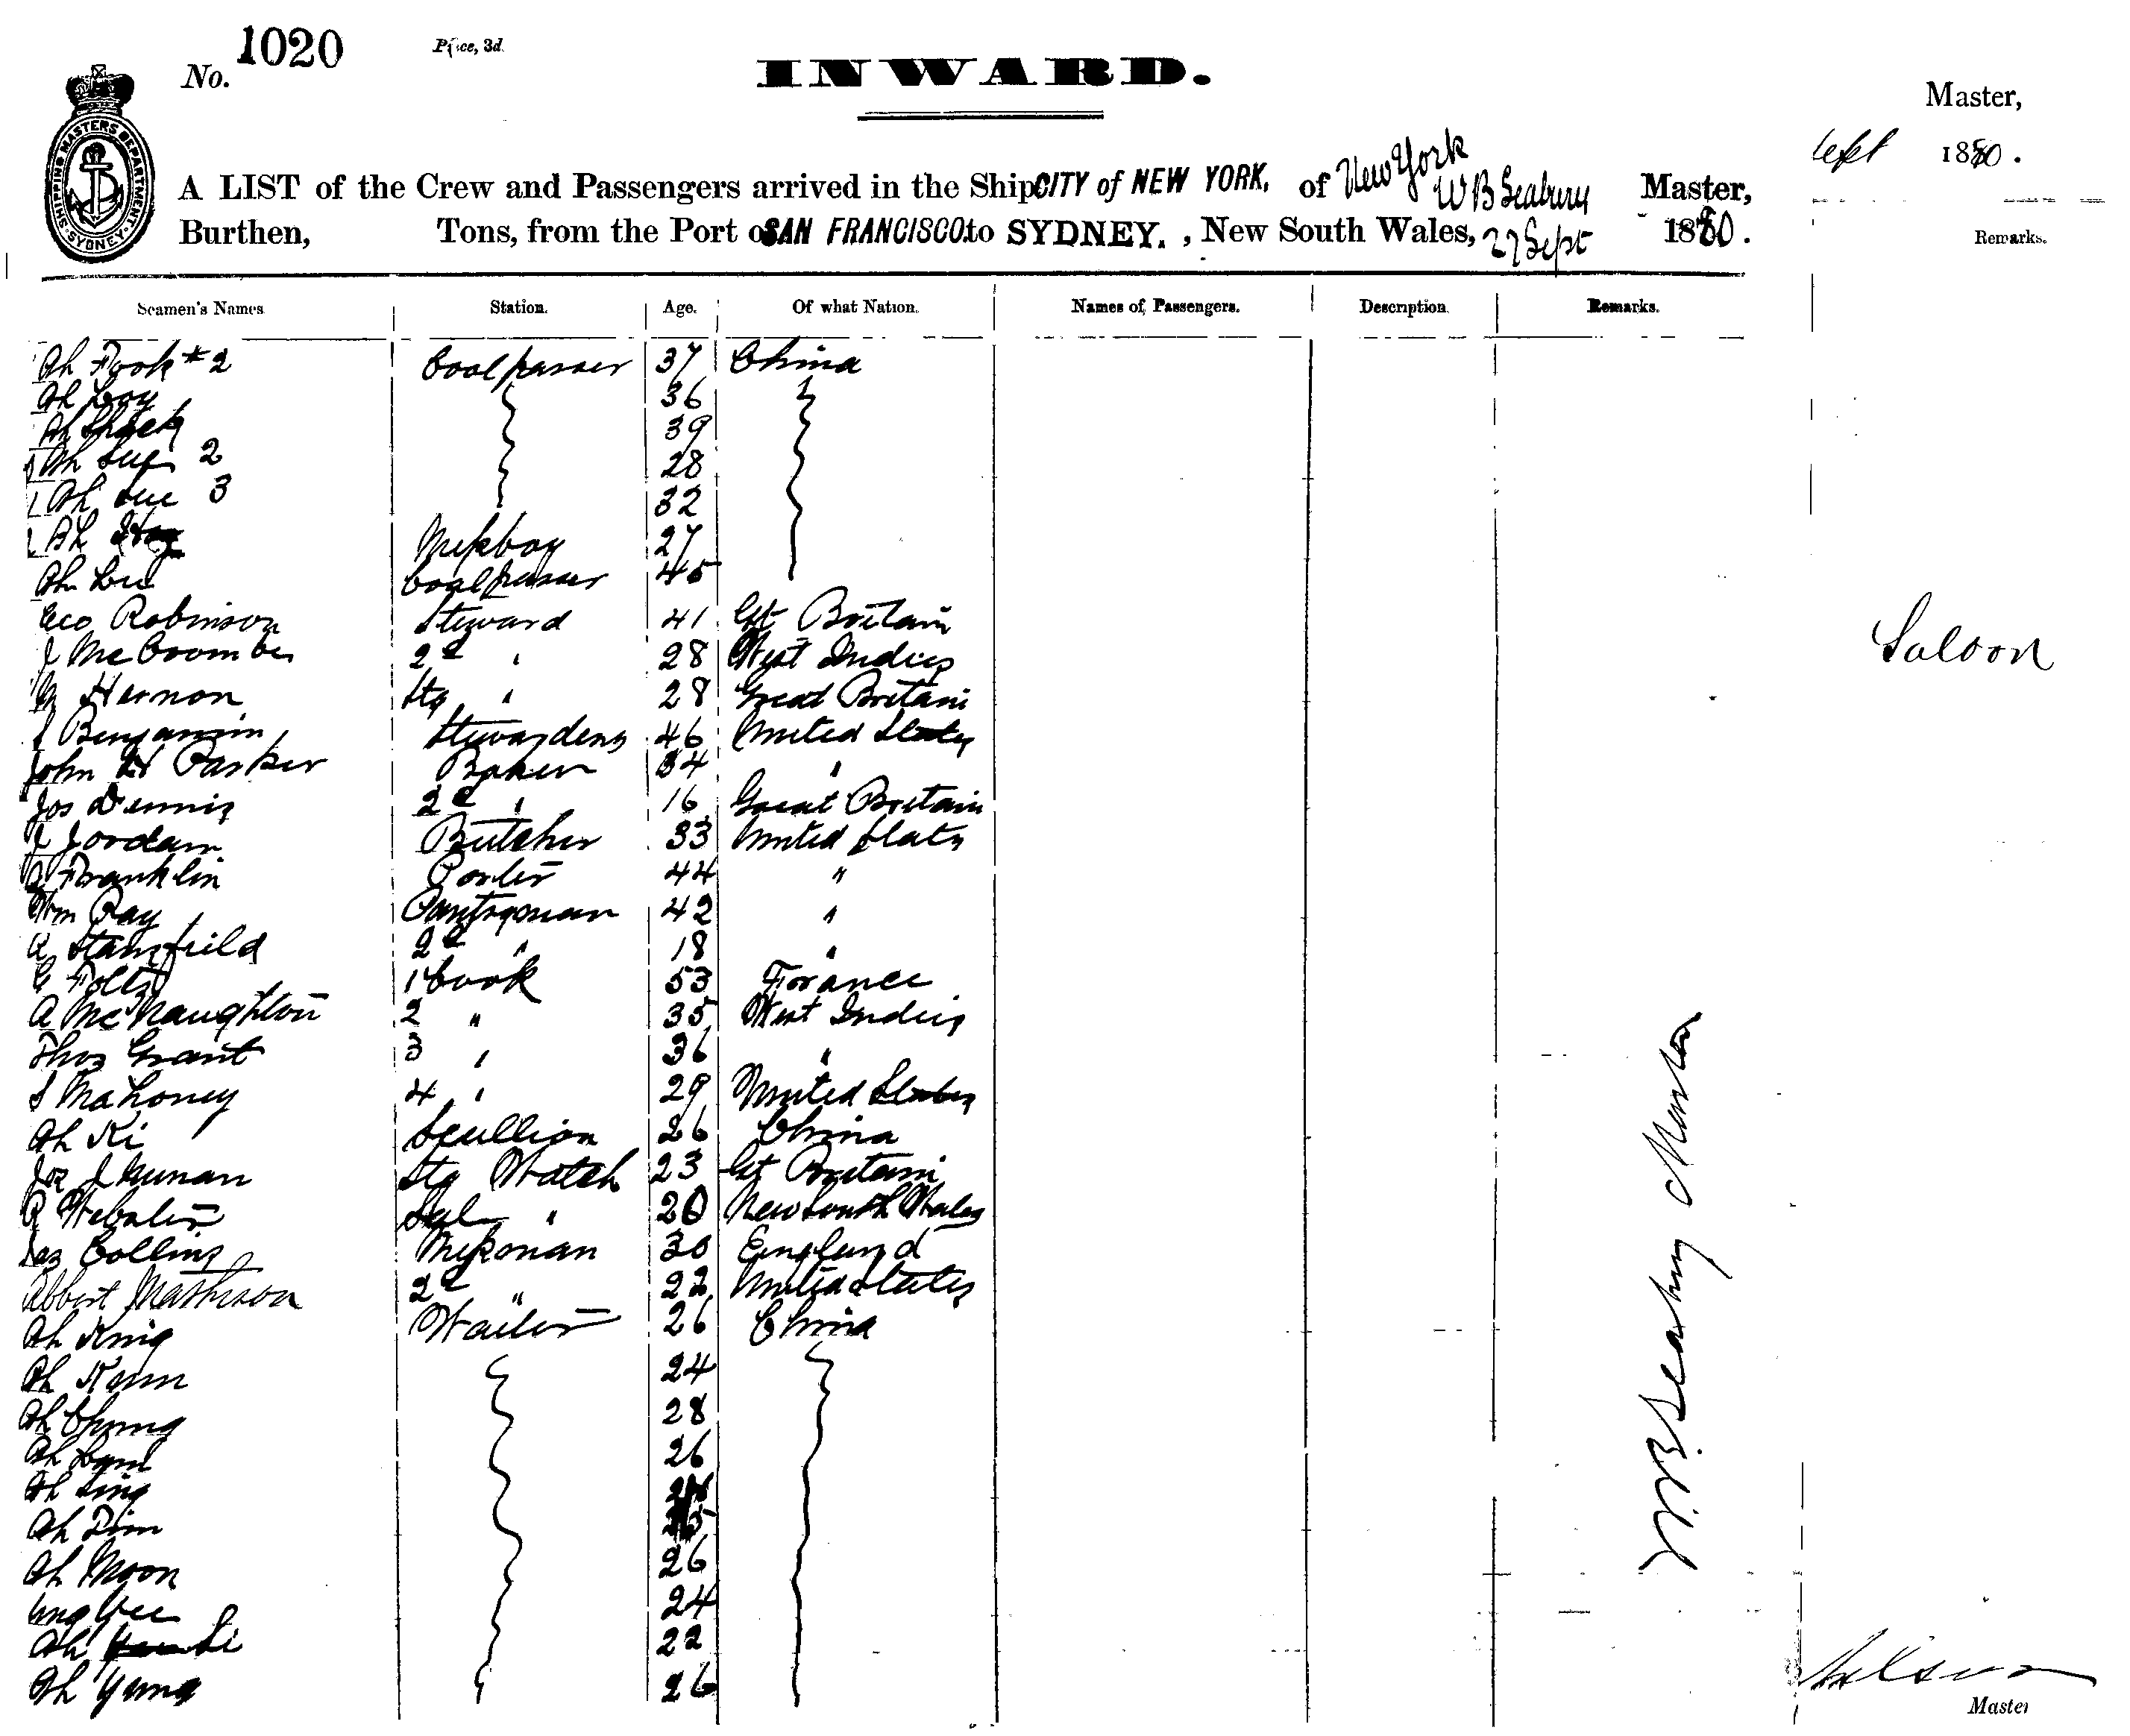 No. 1020
Price, 3d.
INWARD.
SHIPPING MASTERS DEPARTMENT
SYDNEY
A LIST of the Crew and Passengers arrived in the Ship CITY of NEW YORK, of New York W B Seabury Master,
Burthen, Tons, from the Port of SAN FRANCISCO to SYDNEY. , New South Wales, 27 Sept 1880.
Seamen's Names Station. Age. Of what Nation. Names of Passengers. Description. Remarks.
Ah Fook # 2 Coal passer 37 China
Ah Loy 36
Ah 39
Ah 2 28
Ah 3 32
Ah 27
Ah Coal passer 45
Geo Robinson Steward 41 Gt Britain
J McCoombe 2d " 28 West Indies
Hernon Stg " 28 Great Britain
Benjamin Stewardess 46 United States
John H Parker Baker 34 "
Jos Dennis 2d " 16 Great Britain
J Jordan Butcher 33 United States
Franklin Porter 44 "
Wm Ray Pantryman 42 "
A Stansfield 2d " 18 "
Foltz 1 Cook 53 France
A McNaughton 2 " 35 West Indies
Thos Grant 3 " 36 "
S Mahoney 4 " 29 United States
Ah Ki Scullion 26 China
Jos J Stg Watch 23 Gt Britain
R Webster " 20 New South Wales
Jas Collins Messman 30 England
Albert Mathieson 2d " 22 United States
Ah King Waiter 26 China
Ah 24
Ah Chung 28
Ah 26
Ah Sing
Ah
Ah Moon 26
Yee 24
Ah Li 22
Ah Yung 26
W B Seabury Master
Master,
Sept 1880.
Remarks.
Saloon
Master